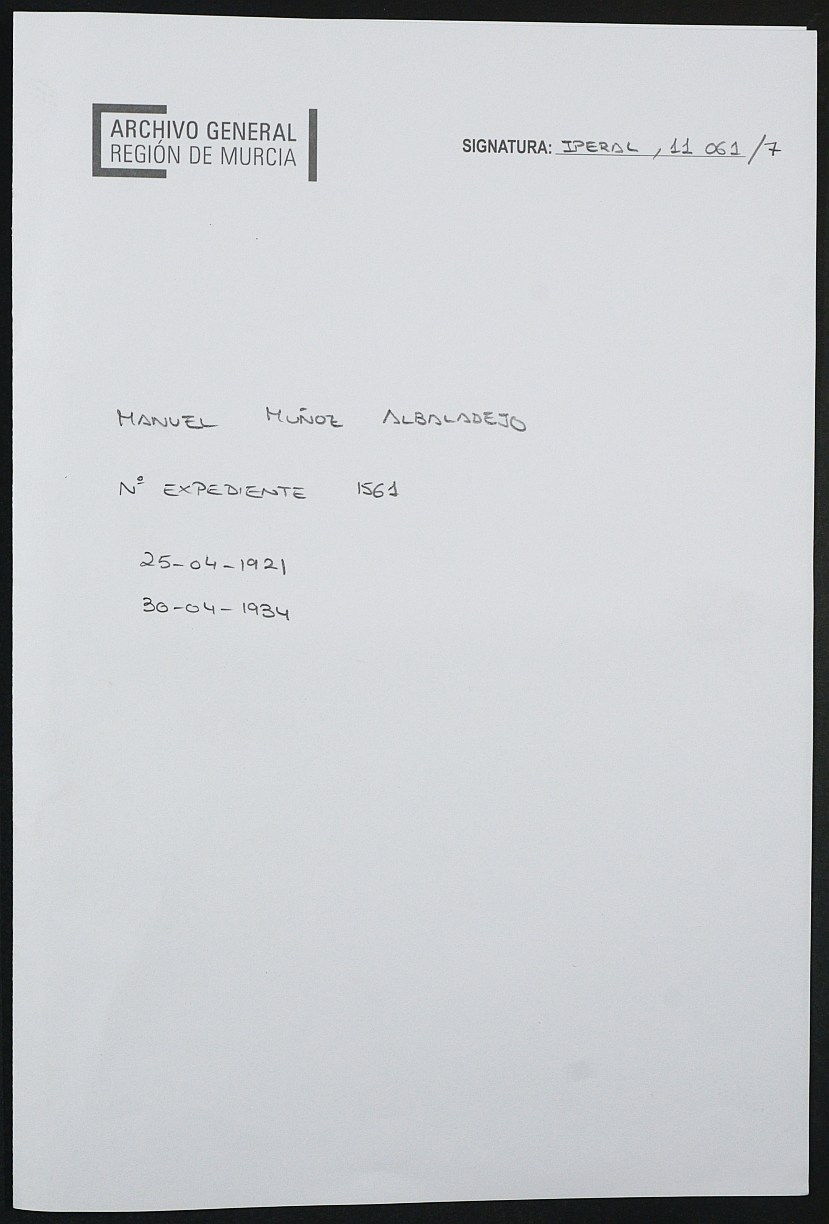 ARCHIVO GENERAL
REGIÓN DE MURCIA
SIGNATURA: IPERAL, 11 061/7
MANUEL MUÑOZ ALBALADEJO
Nº EXPEDIENTE 1561
25-04-1921
30-04-1934